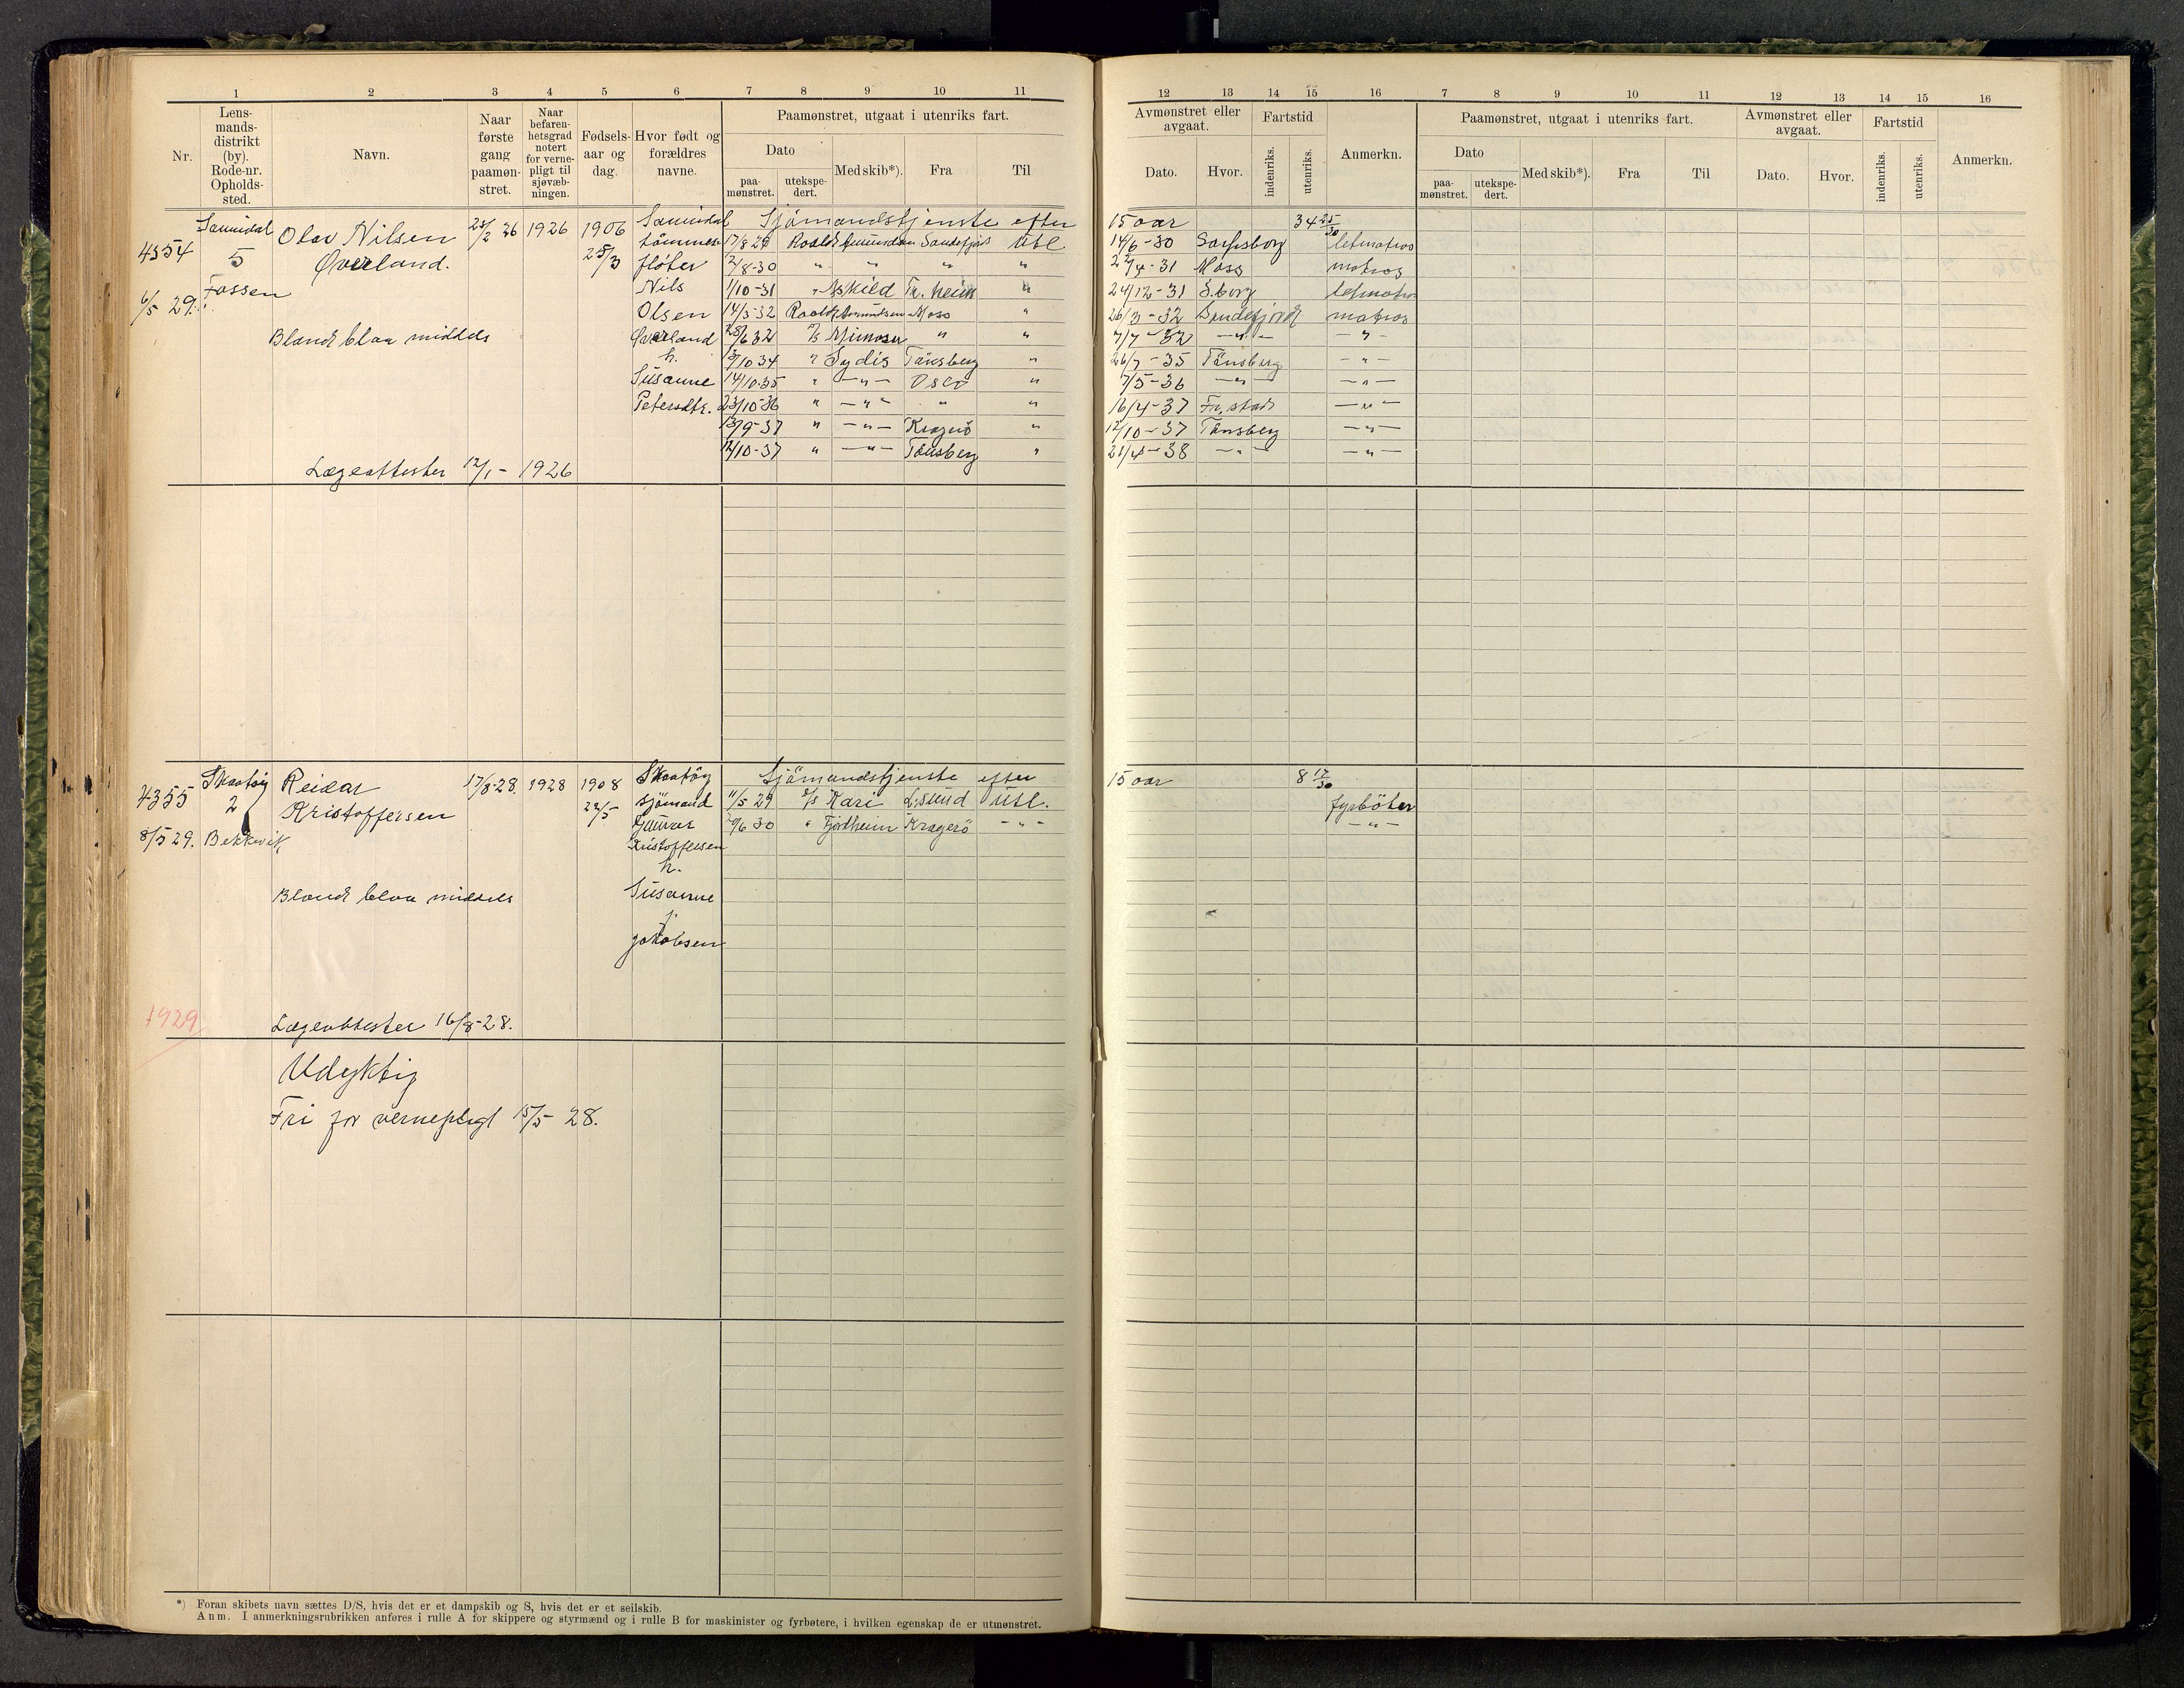 1 2 3 4 5 6 7 8 9 10 11
Nr.
Lens-
mands-
distrikt
(by).
Rode-nr.
Opholds-
sted.
Navn.
Naar
første
gang
paamøn-
stret.
Naar
befaren-
hetsgrad
notert
for verne-
pligt til
sjøvæb-
ningen.
Fødsels-
aar og
dag.
Hvor født og
forældres
navne.
Paamønstret, utgaat i utenriks fart.
Dato
paa-
mønstret.
utekspe-
dert.
Med skib*).
Fra
Til
4354
6/5 29.
Sannidal
5
Fossen
Olav Nilsen
Øverland.
Blond blaa middels
Lægeattester 12/1 - 1926
1926
1906
25/3
Sannidal
tømmer
fløter
Nils
Olsen
Øverland
h.
Susanne
Petersdtr.
Sjömandstjenste efter
17/8 29 Roald Amundsen Sandefjord Utl
12/8-30 " " " "
1/10-31 " Askild Tr. heim "
14/3-32 Roald Amundsen Moss "
28/6 32 Mimosa " "
13/10 34 " Sydis Tönsberg "
14/10-35 " —"— Oslo "
23/10-36 " —"— " "
13/9-37 " —"— Kragerö "
12/10-37 " —"— Tönsberg "
4355
8/5 29.
1929
Skaatöy
2
Bekkevik
Reidar
Kristoffersen
Blond blaa middels
Lægeattester 16/8-28.
17/8-28.
1928
1908
22/5
Skaatöy
sjömand
Gunnar
Kristoffersen
h.
Susanne
j.
Jakobsen
Sjömandstjenste efter
11/5 29 s/s Kari Lisund Utl.
" Fjordheim Kragerö - " -
Udyktig
Fri for vernepligt 15/5 28.
*) Foran skibets navn sættes D/S, hvis det er et dampskib og S, hvis det er et seilskib.
Anm. I anmerkningsrubrikken anføres i rulle A for skippere og styrmænd og i rulle B for maskinister og fyrbøtere, i hvilken egenskap de er utmønstret.
12 13 14 15 16 7 8 9 10 11 12 13 14 15 16
Avmønstret eller
avgaat.
Dato.
Hvor.
Fartstid
indenriks.
utenriks.
Anmerkn.
Paamønstret, utgaat i utenriks fart.
Dato
paa-
mønstret.
utekspe-
dert.
Med skib*).
Fra
Til
Avmønstret eller
avgaat.
Dato.
Hvor.
Fartstid
indenriks.
utenriks.
Anmerkn.
15 aar 34 25/30
14/6-30 Sarpsborg letmatros
22/4-31 Moss matros
24/12-31 S.borg letmatros
26/3-32 Sandefjord matros
7/7-32 —"— —"—
26/7-35 Tönsberg —"—
7/5-36 —"— —"—
16/4-37 Fr.stad —"—
12/10-37 Tönsberg —"—
21/4-38 —"— —"—
15 aar 8 17/30
fyrböter
—"—